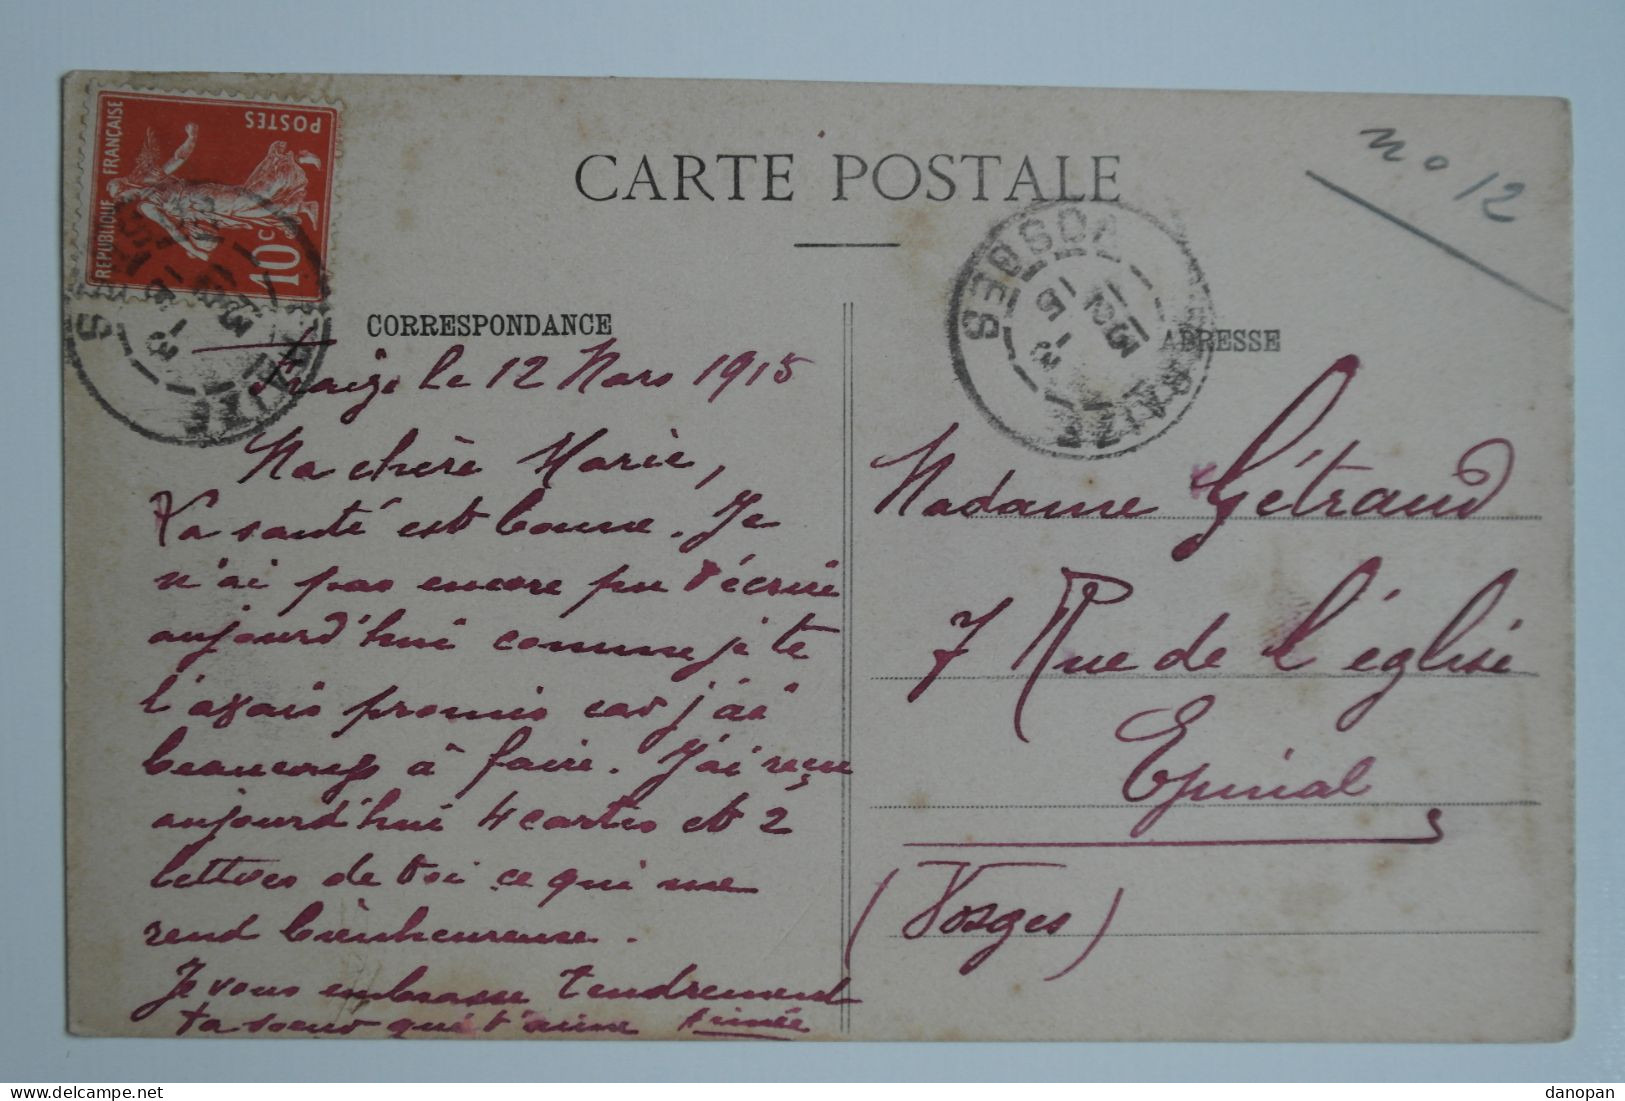 CARTE POSTALE
no 12
POSTES
REPUBLIQUE FRANÇAISE
10 c
FRAIZE
VOSGES
CORRESPONDANCE
ADRESSE
Fraize le 12 Mars 1915
Ma chère Marie,
Ta santé est bonne. Je
n'ai pas encore pu t'écrire
aujourd'hui comme je te
l'avais promis car j'ai
beaucoup à faire. J'ai reçu
aujourd'hui 4 cartes et 2
lettres de toi ce qui me
rend bienheureuse.
Je vous embrasse tendrement
ta soeur qui t'aime Aimée
Madame Gétraud
7 Rue de l'église
Epinal
(Vosges)
danopan